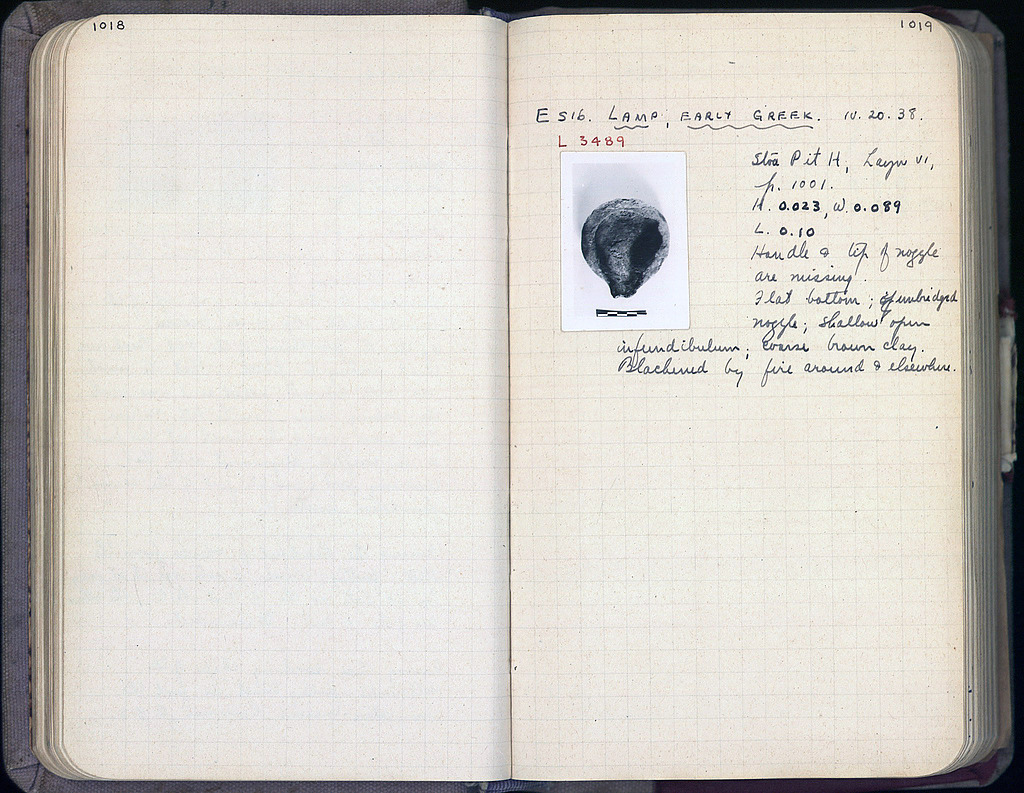 1018
1019
E 516. LAMP, EARLY GREEK. IV. 20. 38.
L 3489
Stoa Pit H, Layer VI,
p. 1001.
H. 0.023, W. 0.089
L. 0.10
Handle & tip of nozzle
are missing.
Flat bottom; unbridged
nozzle; shallow open
infundibulum; coarse brown clay.
Blackened by fire around & elsewhere.